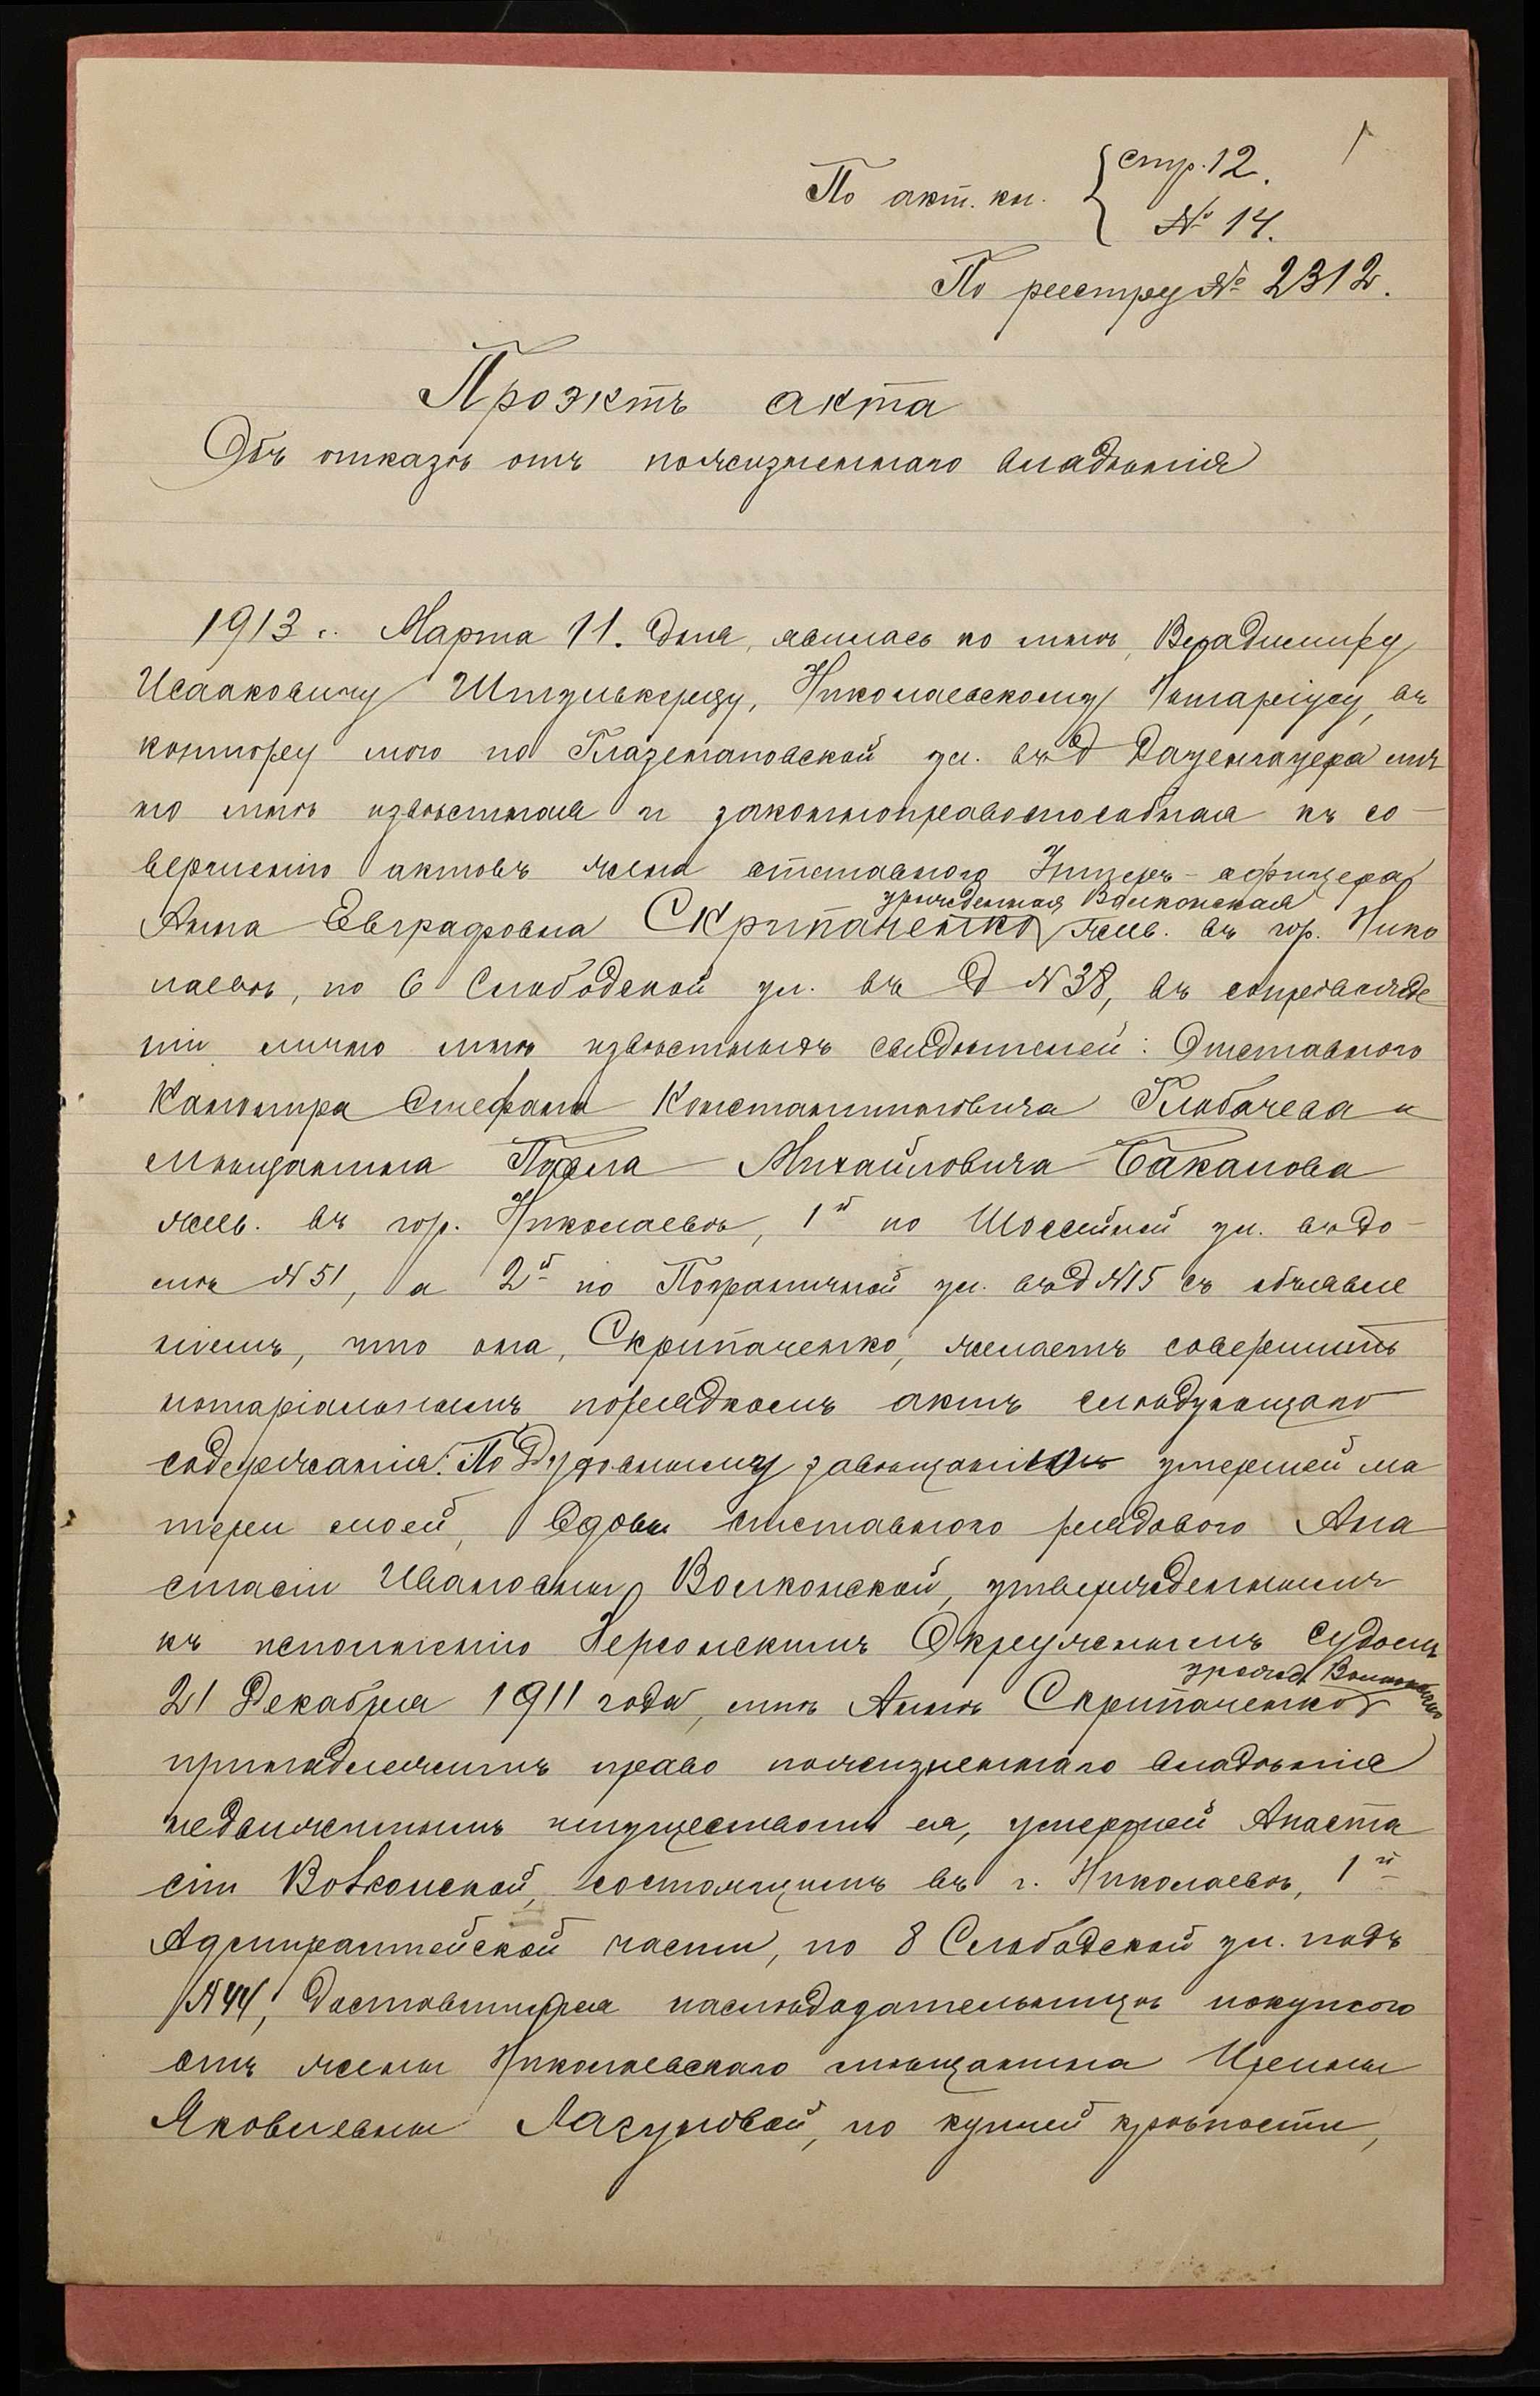 По акт. кн. { стр. 12.
№ 14.
По реестру № 2312.
Проэктъ акта
Объ отказѣ отъ пожизненнаго владѣнія
1913 г. Марта 11. дня, явилась ко мнѣ, Владимиру
Исааковичу Штулькерцу, Николаевскому Нотаріусу, въ
контору мою по Глазенаповской ул. въ д лич
но мнѣ извѣстная и законноправоспособная къ со-
вершенію актовъ жена отставного Унтеръ-офицера
урожденная Волконская
Анна Евграфовна Скрипаченко, жив. въ гор. Нико
лаевѣ, по 6 Слободской ул. въ д № 38, въ сопровожде
ніи лично мнѣ извѣстныхъ свидѣтелей: Отставного
Канонира Стефана Константиновича Глобачева и
мѣщанина Павла Михайловича Бакалова
жив. въ гор. Николаевѣ, 1й по Шоссейной ул. въ до-
мѣ № 51, а 2й по Пограничной ул. въ д № 15 съ объявле
ніемъ, что она, Скрипаченко, желаетъ совершить
нотаріальнымъ порядкомъ актъ слѣдующаго
содержанія: По Духовному завѣщанію умершей ма
тери моей, вдовы отставного рядового Ана
стасіи Ивановны Волконской, утвержденнымъ
къ исполненію Херсонскимъ Окружнымъ Судомъ
урожд. Волконской
21 Декабря 1911 года, мнѣ Аннѣ Скрипаченко
принадлежитъ право пожизненнаго владѣнія
недвижимымъ имуществомъ ея, умершей Анаста
сіи Волконской, состоящимъ въ г. Николаевѣ, 1й
Адмиралтейской части, по 8 Слободской ул. подъ
№ 44, доставшимся наслѣдодательницѣ покупкою
отъ жены Николаевскаго мѣщанина Ирины
Яковлевны Лагуновой, по купчей крѣпости,